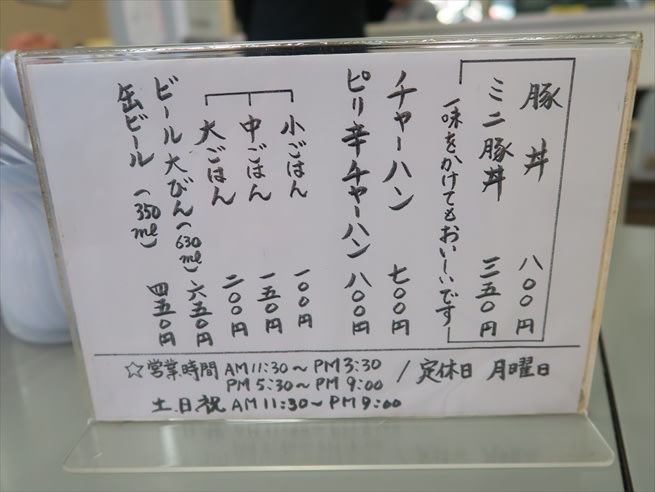 豚丼 八〇〇円
ミニ豚丼 三五〇円
一味をかけてもおいしいです
チャーハン 七〇〇円
ピリ辛チャーハン 八〇〇円
小ごはん 一〇〇円
中ごはん 一五〇円
大ごはん 二〇〇円
ビール大びん(630ml) 六五〇円
缶ビール(350ml) 四五〇円
☆営業時間 AM11:30〜PM3:30 / 定休日 月曜日
PM5:30〜PM9:00
土.日祝 AM11:30〜PM9:00